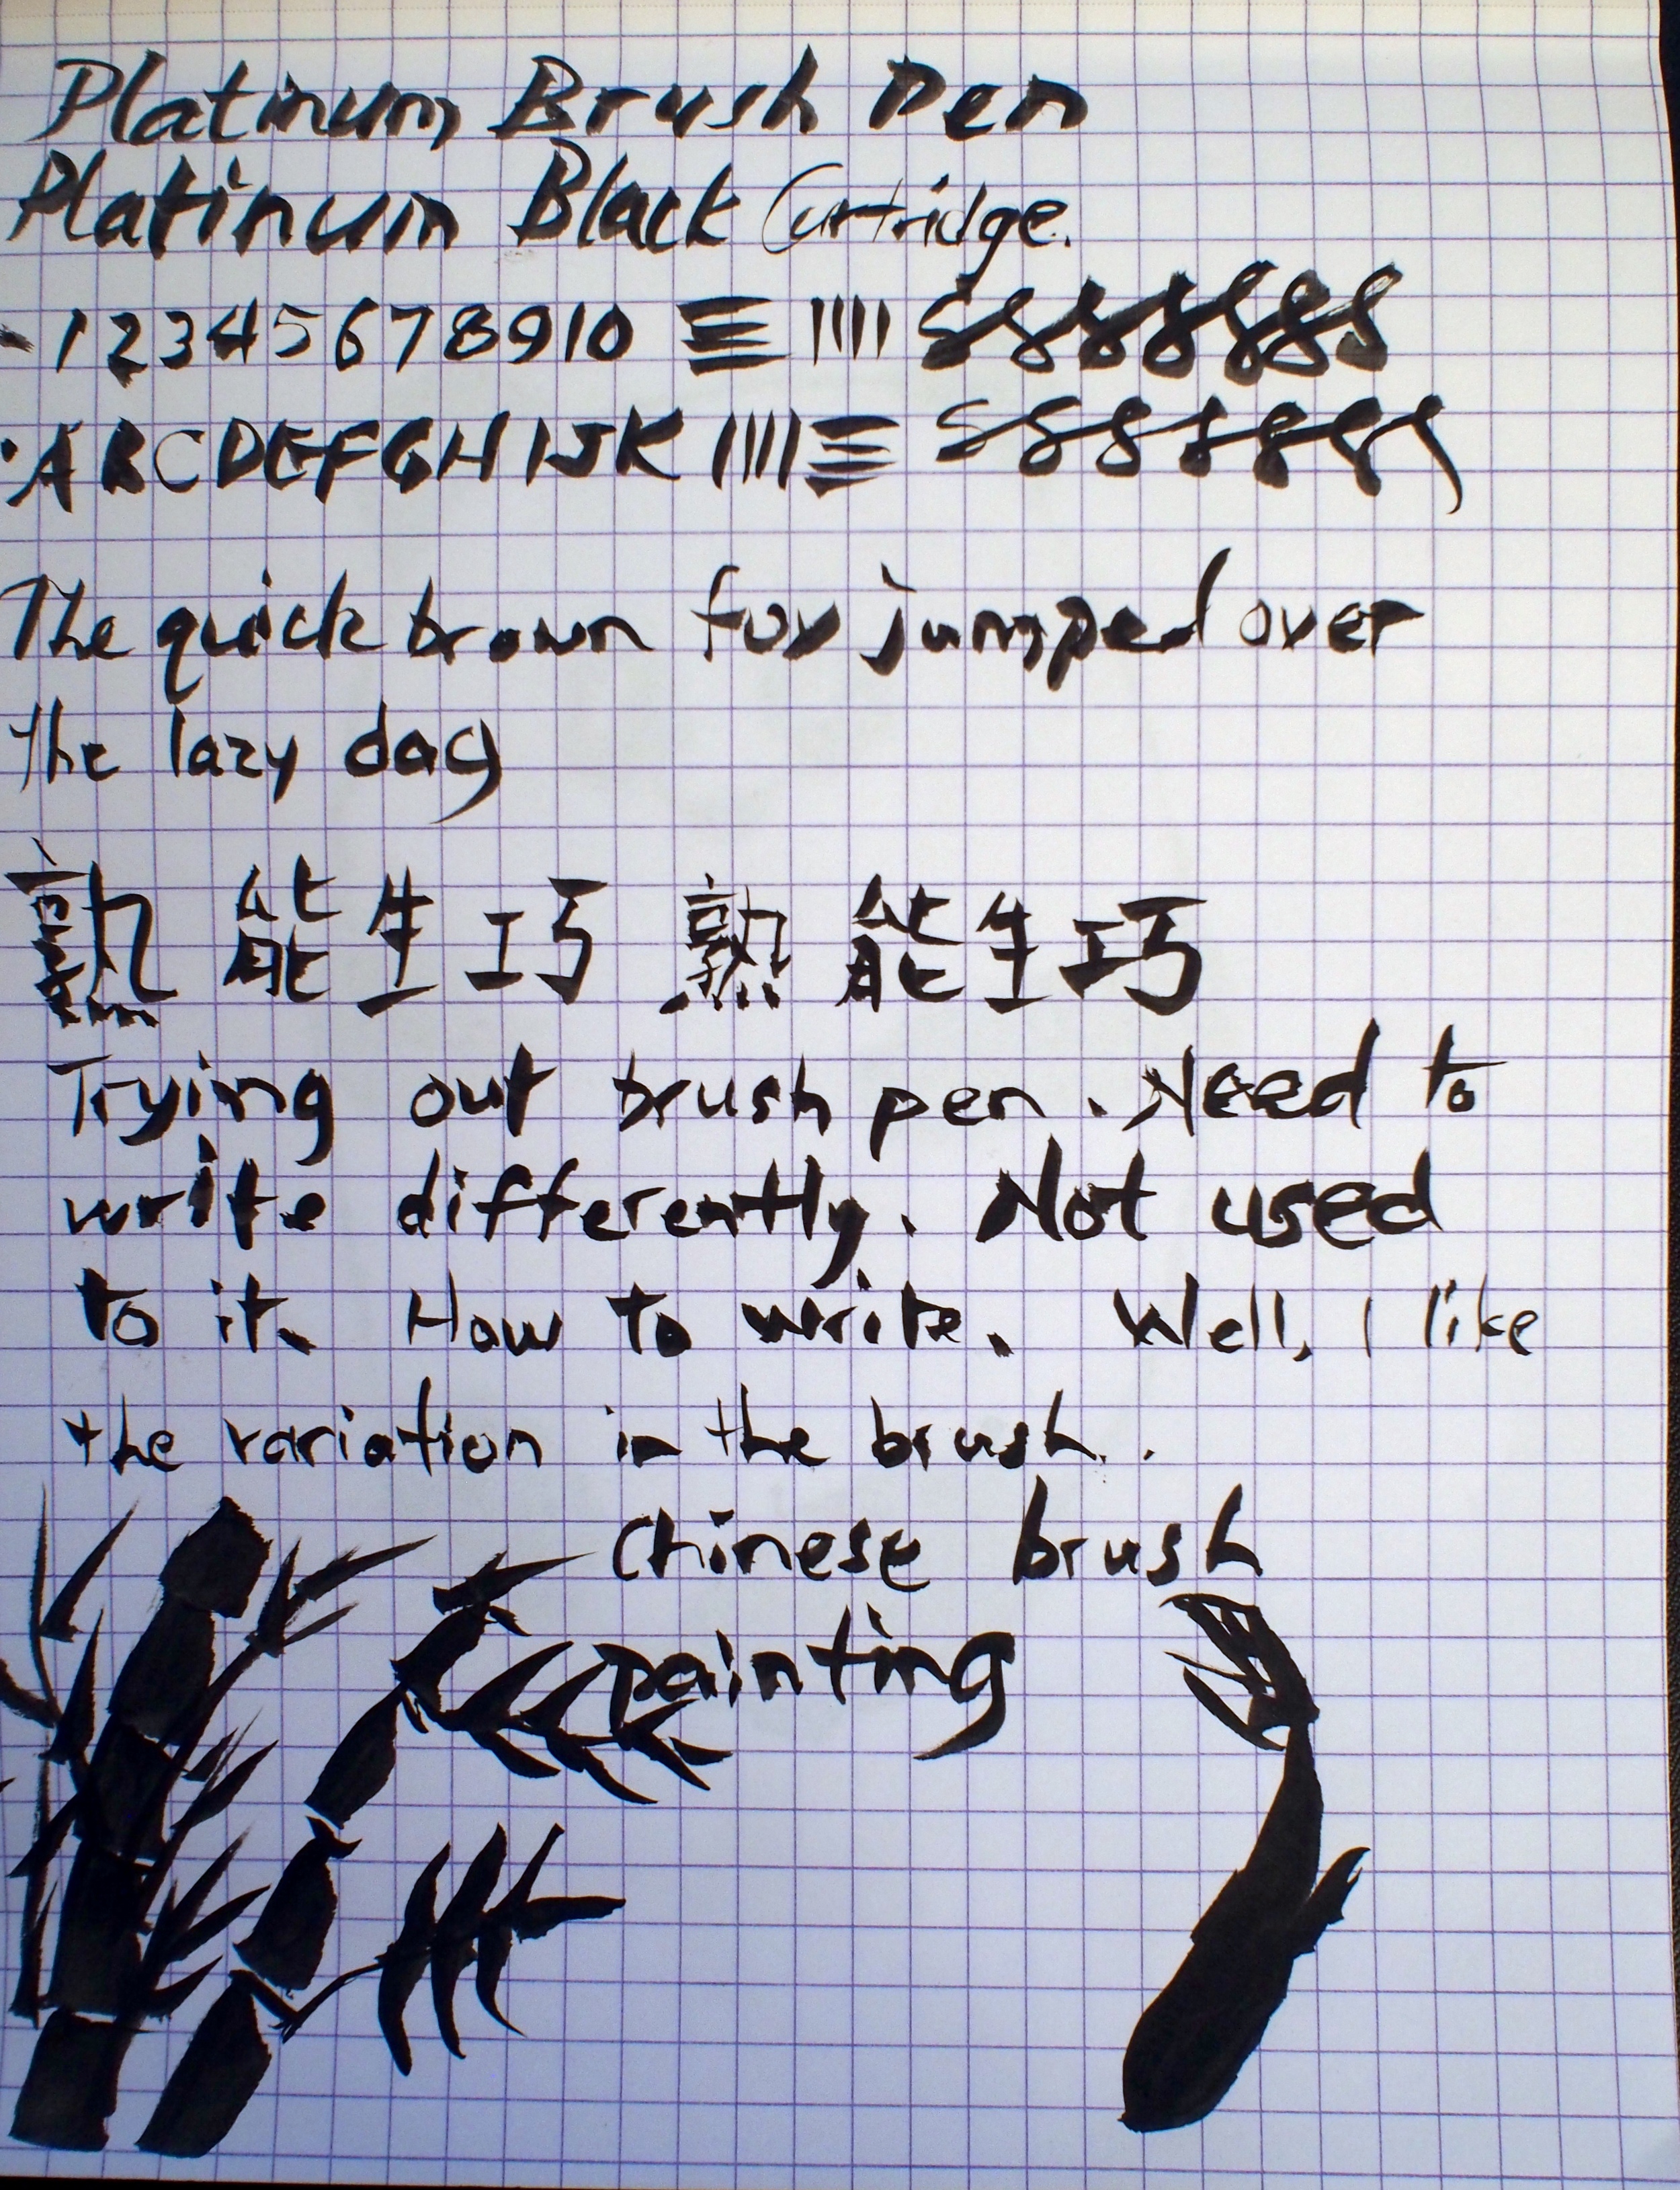 Platinum Brush Pen
Platinum Black Cartridge.
12345678910
ABCDEFGHIJK
The quick brown fox jumped over
the lazy dog
熟能生巧 熟能生巧
Trying out brush pen. Need to
write differently. Not used
to it. How to write. Well, I like
the variation in the brush.
Chinese brush
painting